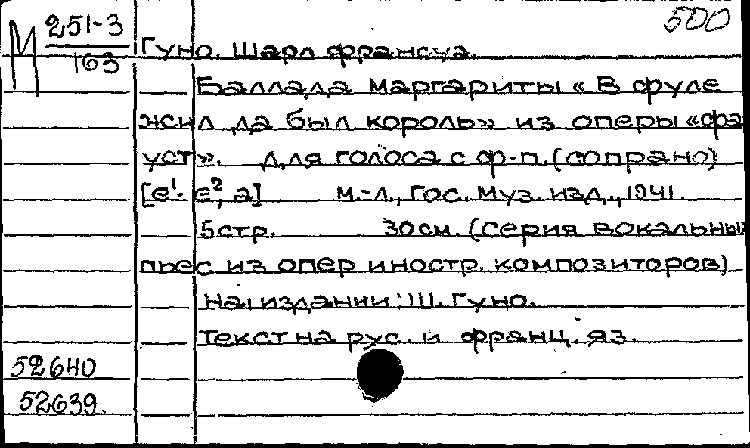 М 251-3
163
500
Гуно. Шарл франсуа.
Баллада маргариты "В фуле
жил да был король" из оперы "фа
уст". Для голоса с ф-п. (сопрано)
[e¹-e², a] М.-Л., Гос. муз. изд., 1941.
5 стр. 30 см. (Серия вокальны
пьес из опер иностр. композиторов)
На издании: Ш. Гуно.
Текст на рус. и франц. яз.
52640
52639.